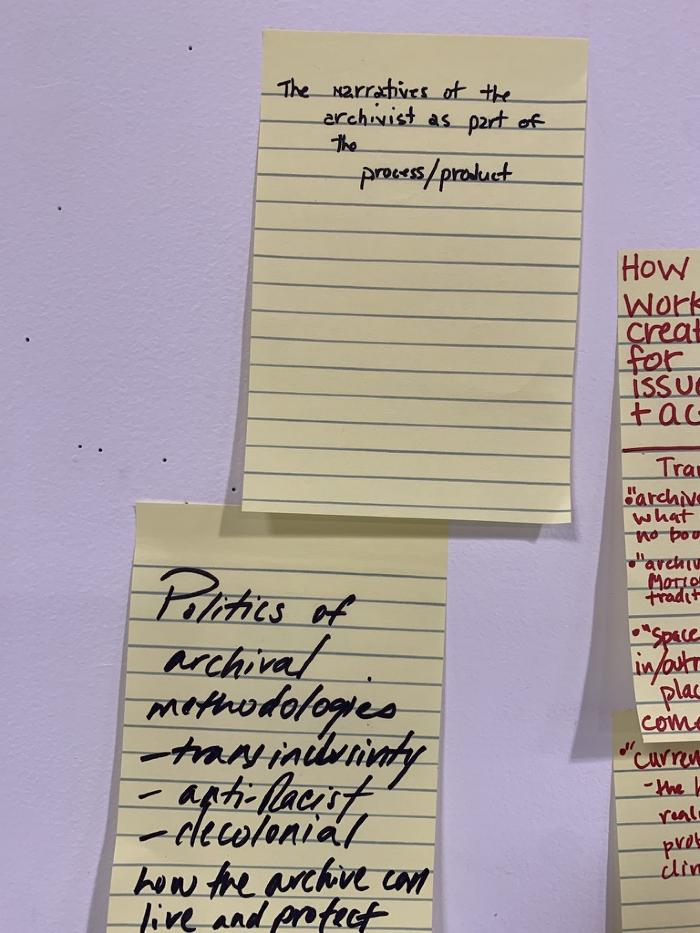 The narratives of the
archivist as part of
the
process/product
Politics of
archival
methodologies
- trans inclusivity
- anti-Racist
- decolonial
how the archive can
live and protect
How
work
creat
for
issue
+ ac
Tran
"archive
what
no bou
"archiv
tradit
"Space
in/outs
plac
come
"curren
- the h
reali
prob
clim